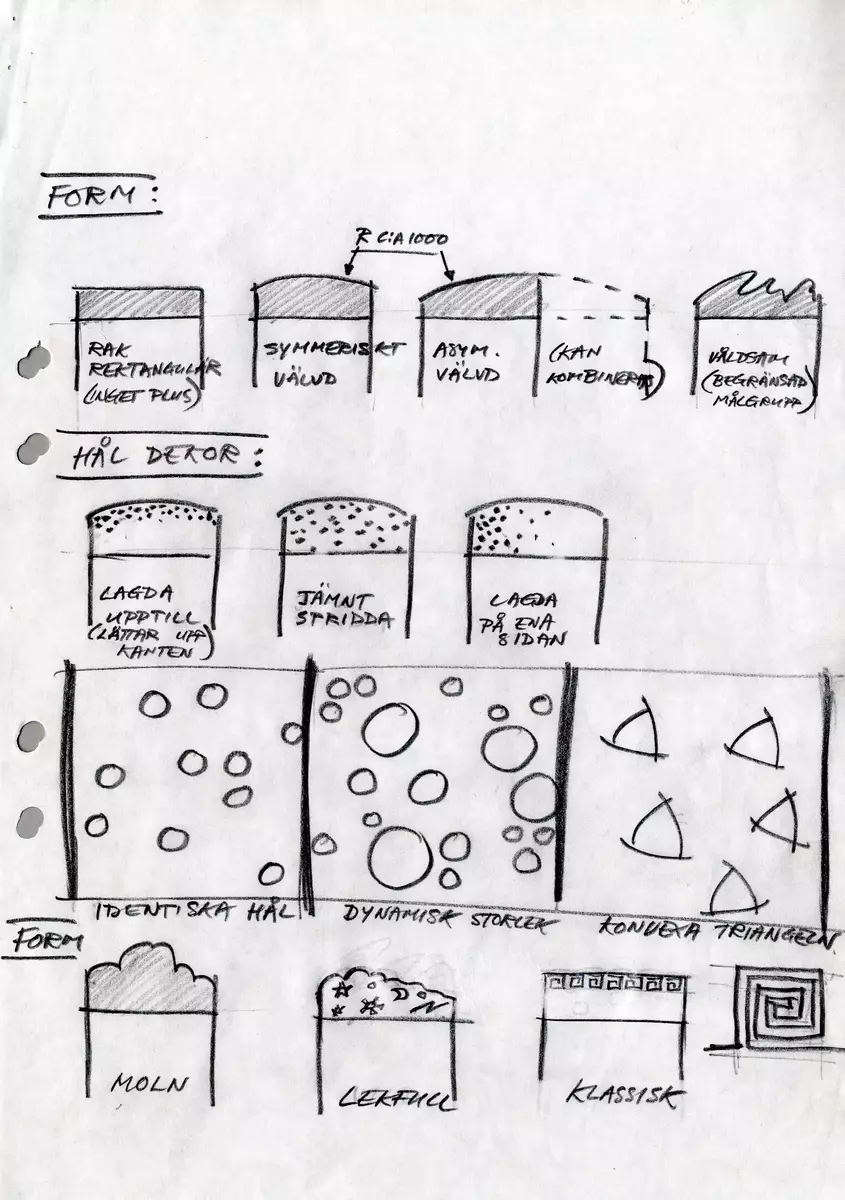 FORM:
R CIA 1000
RAK
REKTANGULÄR
(INGET PLUS)
SYMMERISKT
VÄLVD
ASYM.
VÄLVD
(KAN
KOMBINERAS)
VÅLDSAM
(BEGRÄNSAD
MÅLGRUPP)
HÅL DEKOR:
LAGDA
UPPTILL
(LÄTTAR UPP
KANTEN)
JÄMNT
STRIDDA
LAGDA
PÅ ENA
SIDAN
IDENTISKA HÅL
DYNAMISK STORLEK
KONVEXA TRIANGELN
FORM
MOLN
LEKFULL
KLASSISK